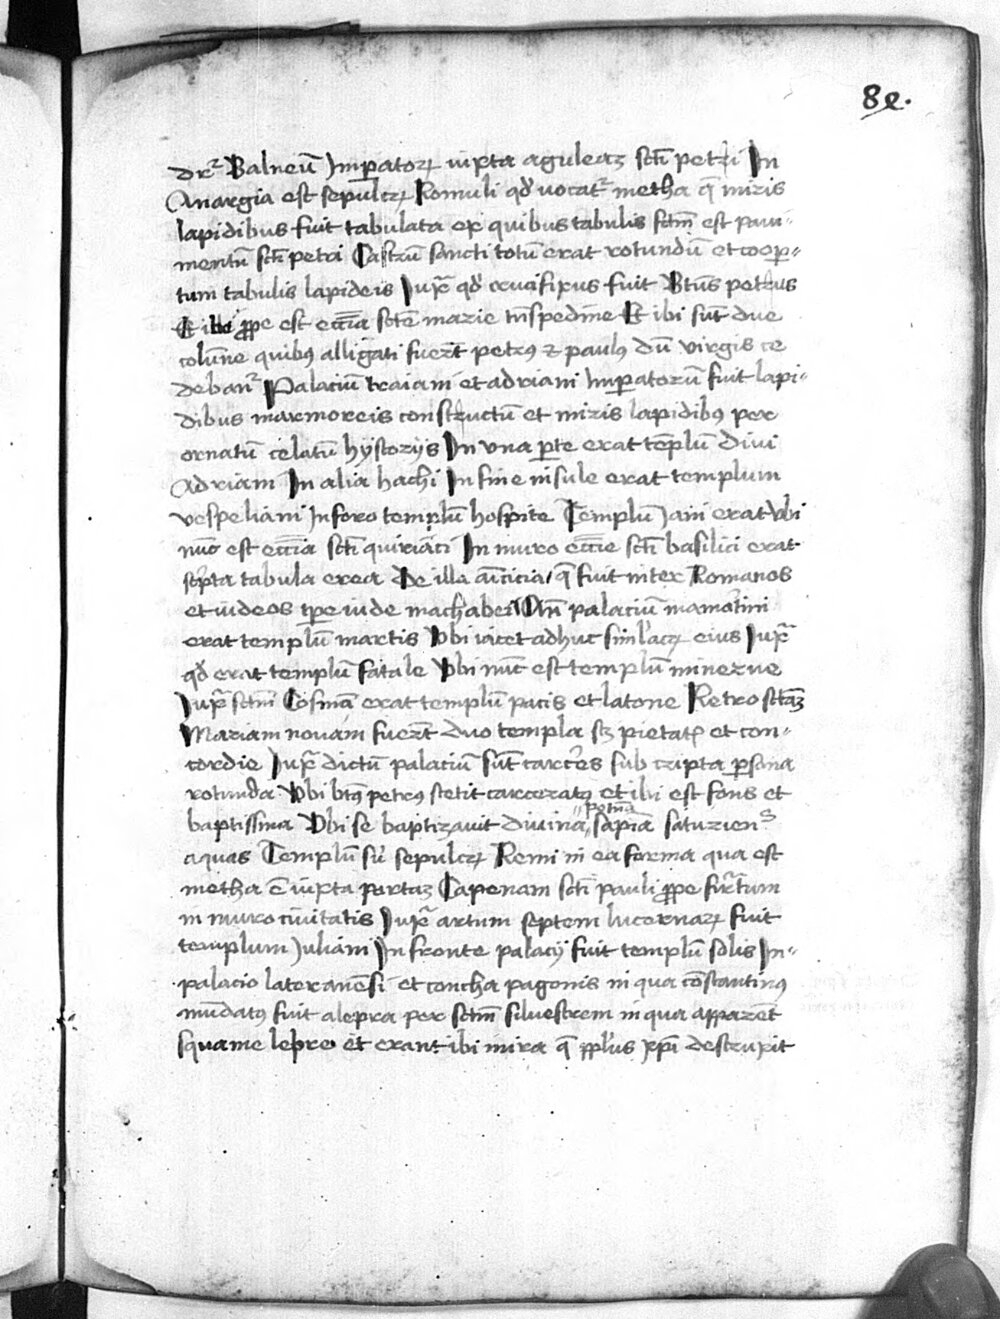 82.
dr̄ Balneū Imp̲atoꝝ iuxta aguleaꝫ scti petri In
Anargia est sepulcꝝ Romuli qđ vocat᷑ metha q̄ miris
lapidibus fuit tabulata ex quibus tabulis sctm̄ est paui-
mentū scti petri Castrū sancti totū erat rotundū et coop̲-
tum tabulis lapideis Iux̄ qđ crucifixus fuit Btūs petrus
Et ibi ꝓpe est eccīa scte marie tn̄spedine Et ibi sūt due
colūne quibꝰ alligati fuer̄t petrꝰ ⁊ paulꝰ dū virgis ce
debant᷑ Palaciū traiani et adriani Imp̲atorū fuit lapi-
dibus marmoreis constructū et miris lapidibꝰ per
ornatū celatū hystoriis In vna p̲te erat tēplū diui
Adriani In alia hachi In fine insule erat templum
vespeliani In foro templū hospite Templū Iani erat vbi
nūc est eccīa scti quiriaci In muro eccīe scti basilici erat
sc̄pta tabula erea De illa aīcicia q̄ fuit inter Romanos
et iudeos tp̄e iude machabei An̄ palaciū mamortini
erat templū martis Vbi iacet adhuc simlacꝝ eius Iux̄
qđ erat templū fatale Vbi nūc est templū minerue
Iux̄ sctm̄ Cosmā erat templū pacis et latone Retro sctaꝫ
Mariam nouam fuer̄t duo templa sꝫ pietatꝭ et con-
cordie Iux̄ dictū palaciū sūt carceres sub cripta p̲sona
rotunda Vbi btꝰ petrꝰ stetit carceratꝰ et ibi est fons et
baptissma Vbi se baptizauit diuina potn̄a sapīa saturien᷑
aquas Templū sū sepulcꝝ Remi in ea forma qua est
metha ē iuxta portaꝫ Capenam scti pauli ꝓpe furtum
in muro ciuitatis Iux̄ artum septem lucernaꝝ fuit
templum Iuliani In fronte palacij fuit templū solis In-
palacio lateranēsi et concha pagonis in qua cōstantinꝰ
mūdatꝰ fuit alepra per sctm̄ siluestrem in qua apparēt
squame lepre et erant ibi mira q̄ pplūs xp̄i destruxit